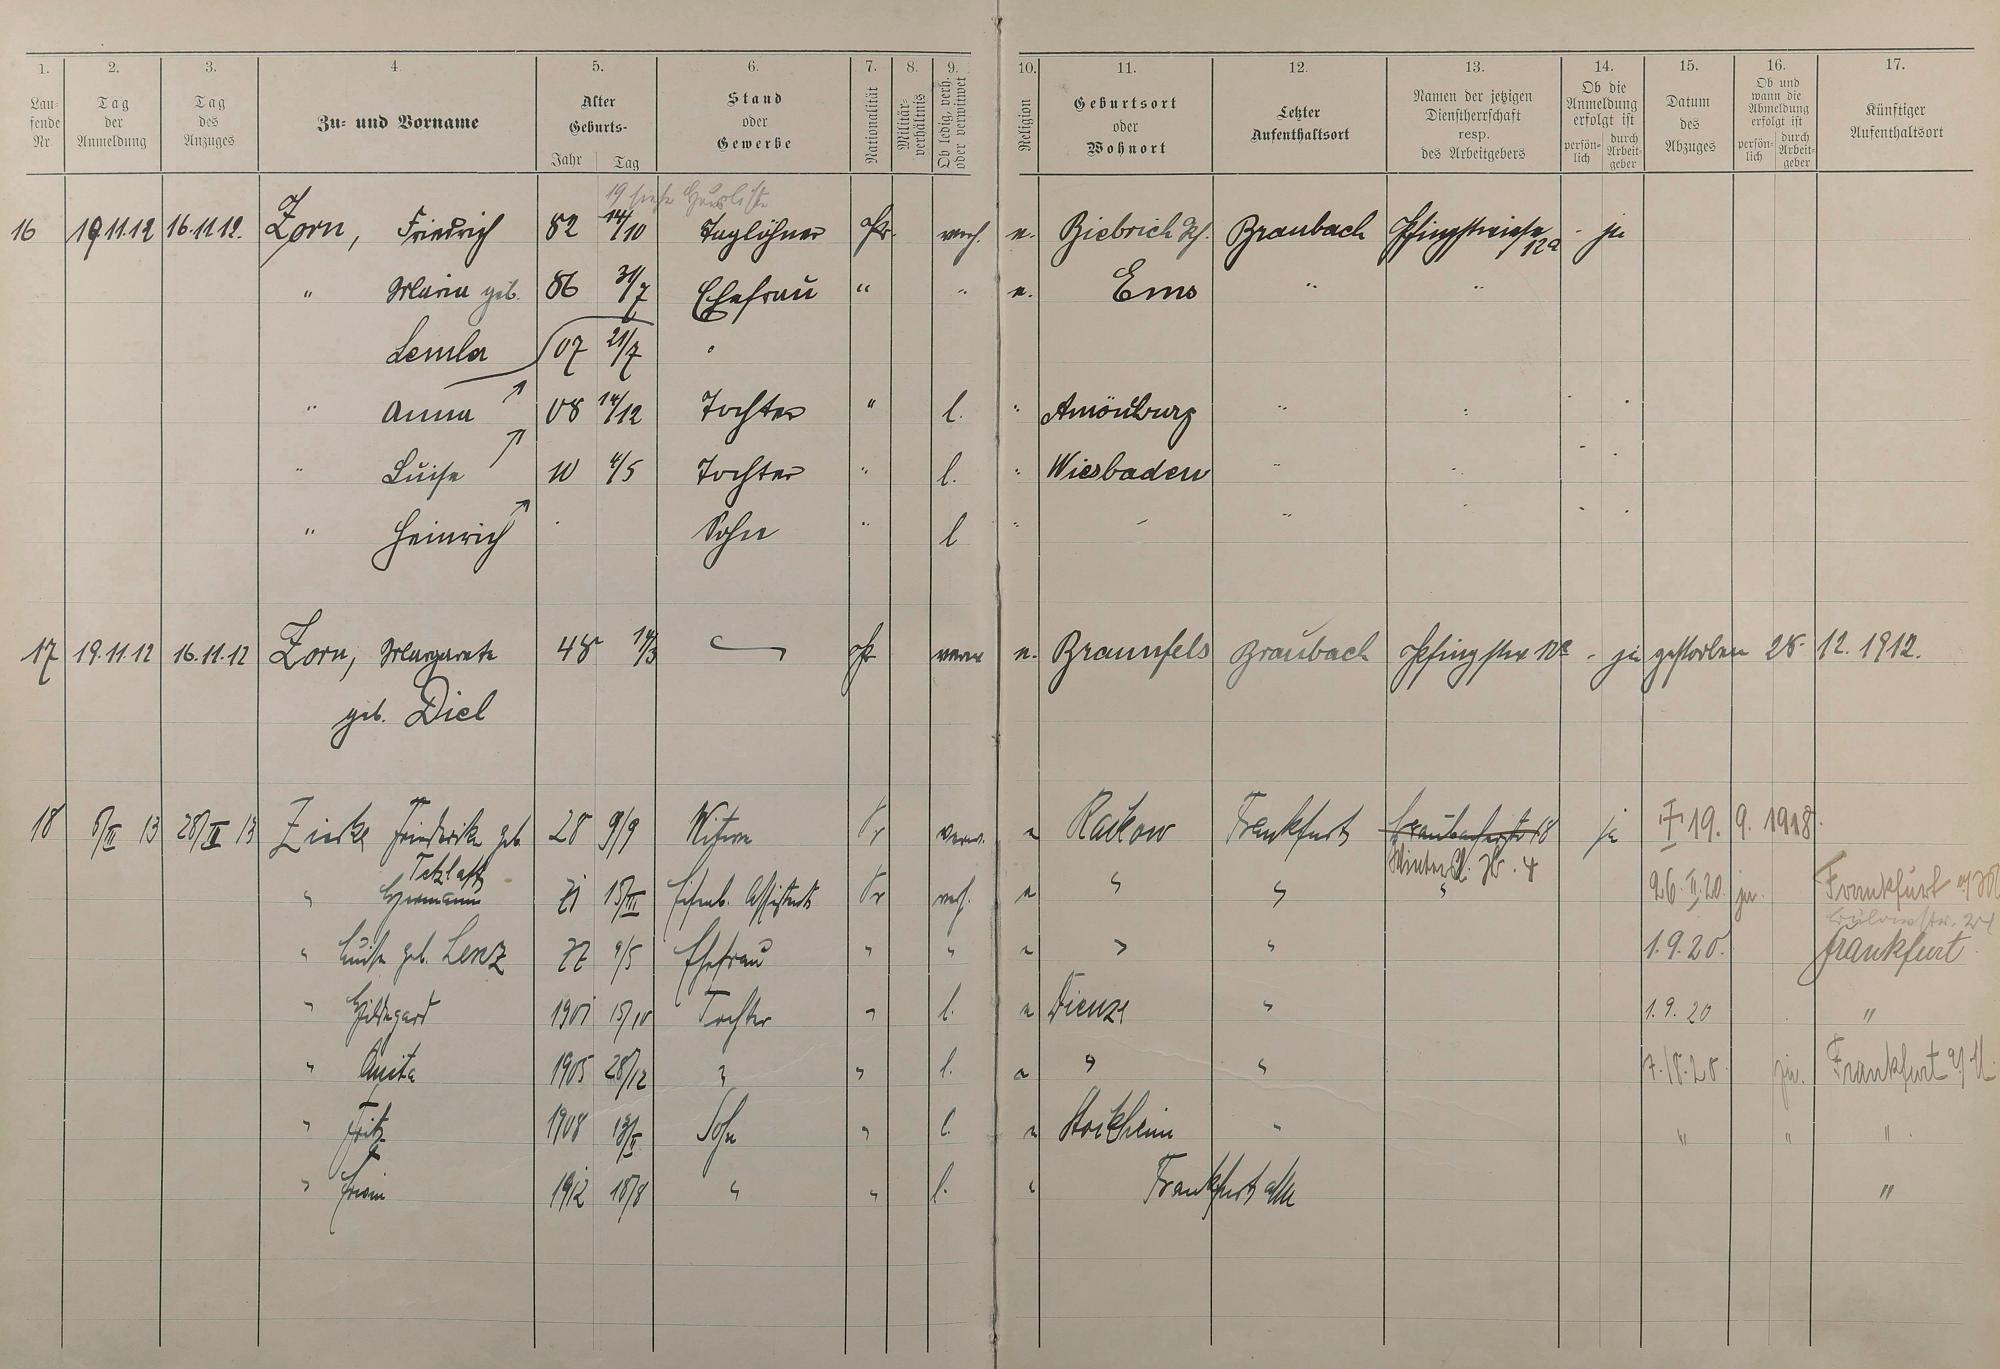 1. 2. 3. 4. 5. 6. 7. 8. 9. 10. 11. 12. 13. 14. 15. 16. 17.
Lau-
fende
Nr.
Tag
der
Anmeldung
Tag
des
Anzuges
Zu- und Vorname
Alter
Geburts-
Jahr Tag
Stand
oder
Gewerbe
Nationalität
Militär-
verhältnis
Ob ledig, verh.
oder verwitwet
Religion
Geburtsort
oder
Wohnort
Letzter
Aufenthaltsort
Namen der jetzigen
Dienstherrschaft
resp.
des Arbeitgebers
Ob die
Anmeldung
erfolgt ist
persön-
lich
durch
Arbeit-
geber
Datum
des
Abzuges
Ob und
wann die
Abmeldung
erfolgt ist
persön-
lich
durch
Arbeit-
geber
Künftiger
Aufenthaltsort
19 siehe Hausliste
16 19.11.12 16.11.12. Zorn, Friedrich 82 14/10 Taglöhner Pr. verh. e. Biebrich Braubach Pfingstweise 12a - ja
" Maria geb. 86 31/7 Ehefrau " " e. Ems " "
Lemler 07 21/7
" Anna 08 14/12 Tochter " l. " Amöneburg " "
" Luise 10 4/5 Tochter " l. " Wiesbaden " "
" Heinrich Sohn " l " "
17 19.11.12 16.11.12 Zorn, Margarete 48 14/3 Pr verw e. Braunfels Braubach Pfingstw 12a - ja gestorben 28. 12. 1912.
geb. Diel
18 5/III 13 28/II 13 Zieske Friederike geb 28 9/9 Witwe Pr verw. e Rackow Frankfurt 18 ja † 19. 9. 1918.
Tetzlaff 4
" Hermann 71 15/III Eisenb. Assistent Pr verh. e " " " 26. II. 20. ja Frankfurt a/M
24
" Luise geb. Lenz 77 9/5 Ehefrau " " e " " 1.9.20. Frankfurt
" Hildegard 1901 15/10 Tochter " l. e Dieuze " 1.9.20 "
" Anita 1905 28/12 " " l. e " " ja. Frankfurt a/M.
" Fritz 1908 Sohn " l. e Stockheim " " " "
" Erwin 1912 18/8 " " l. " Frankfurt a/M "